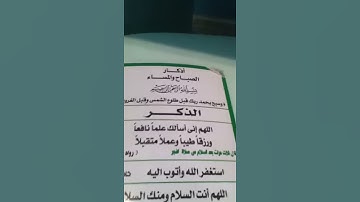 أذكار
الصباح والمساء
بسم الله الرحمن الرحيم
وسبح بحمد ربك قبل طلوع الشمس وقبل الغروب
الذكر
اللهم إنى أسألك علماً نافعاً
ورزقاً طيباً وعملاً متقبلاً
بعد السلام من صلاة الفجر
استغفر الله وأتوب اليه
اللهم أنت السلام ومنك السلا